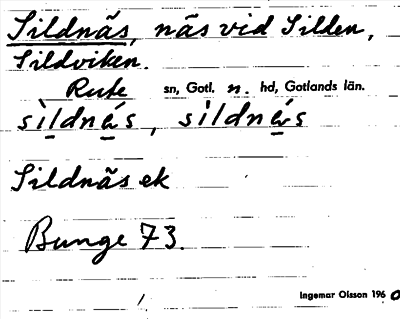 Sildnäs, näs vid Silden,
Sildviken.
Rute sn, Gotl. n. hd, Gotlands län.
sìldnä́s, sìldnä́s
Sildnäs ek
Bunge 73.
Ingemar Olsson 1960